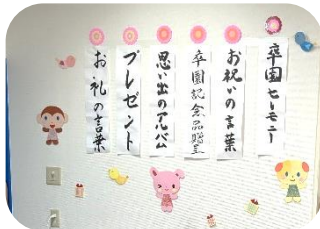 卒園セレモニー
お祝いの言葉
卒園記念品贈呈
思い出のアルバム
プレゼント
お礼の言葉